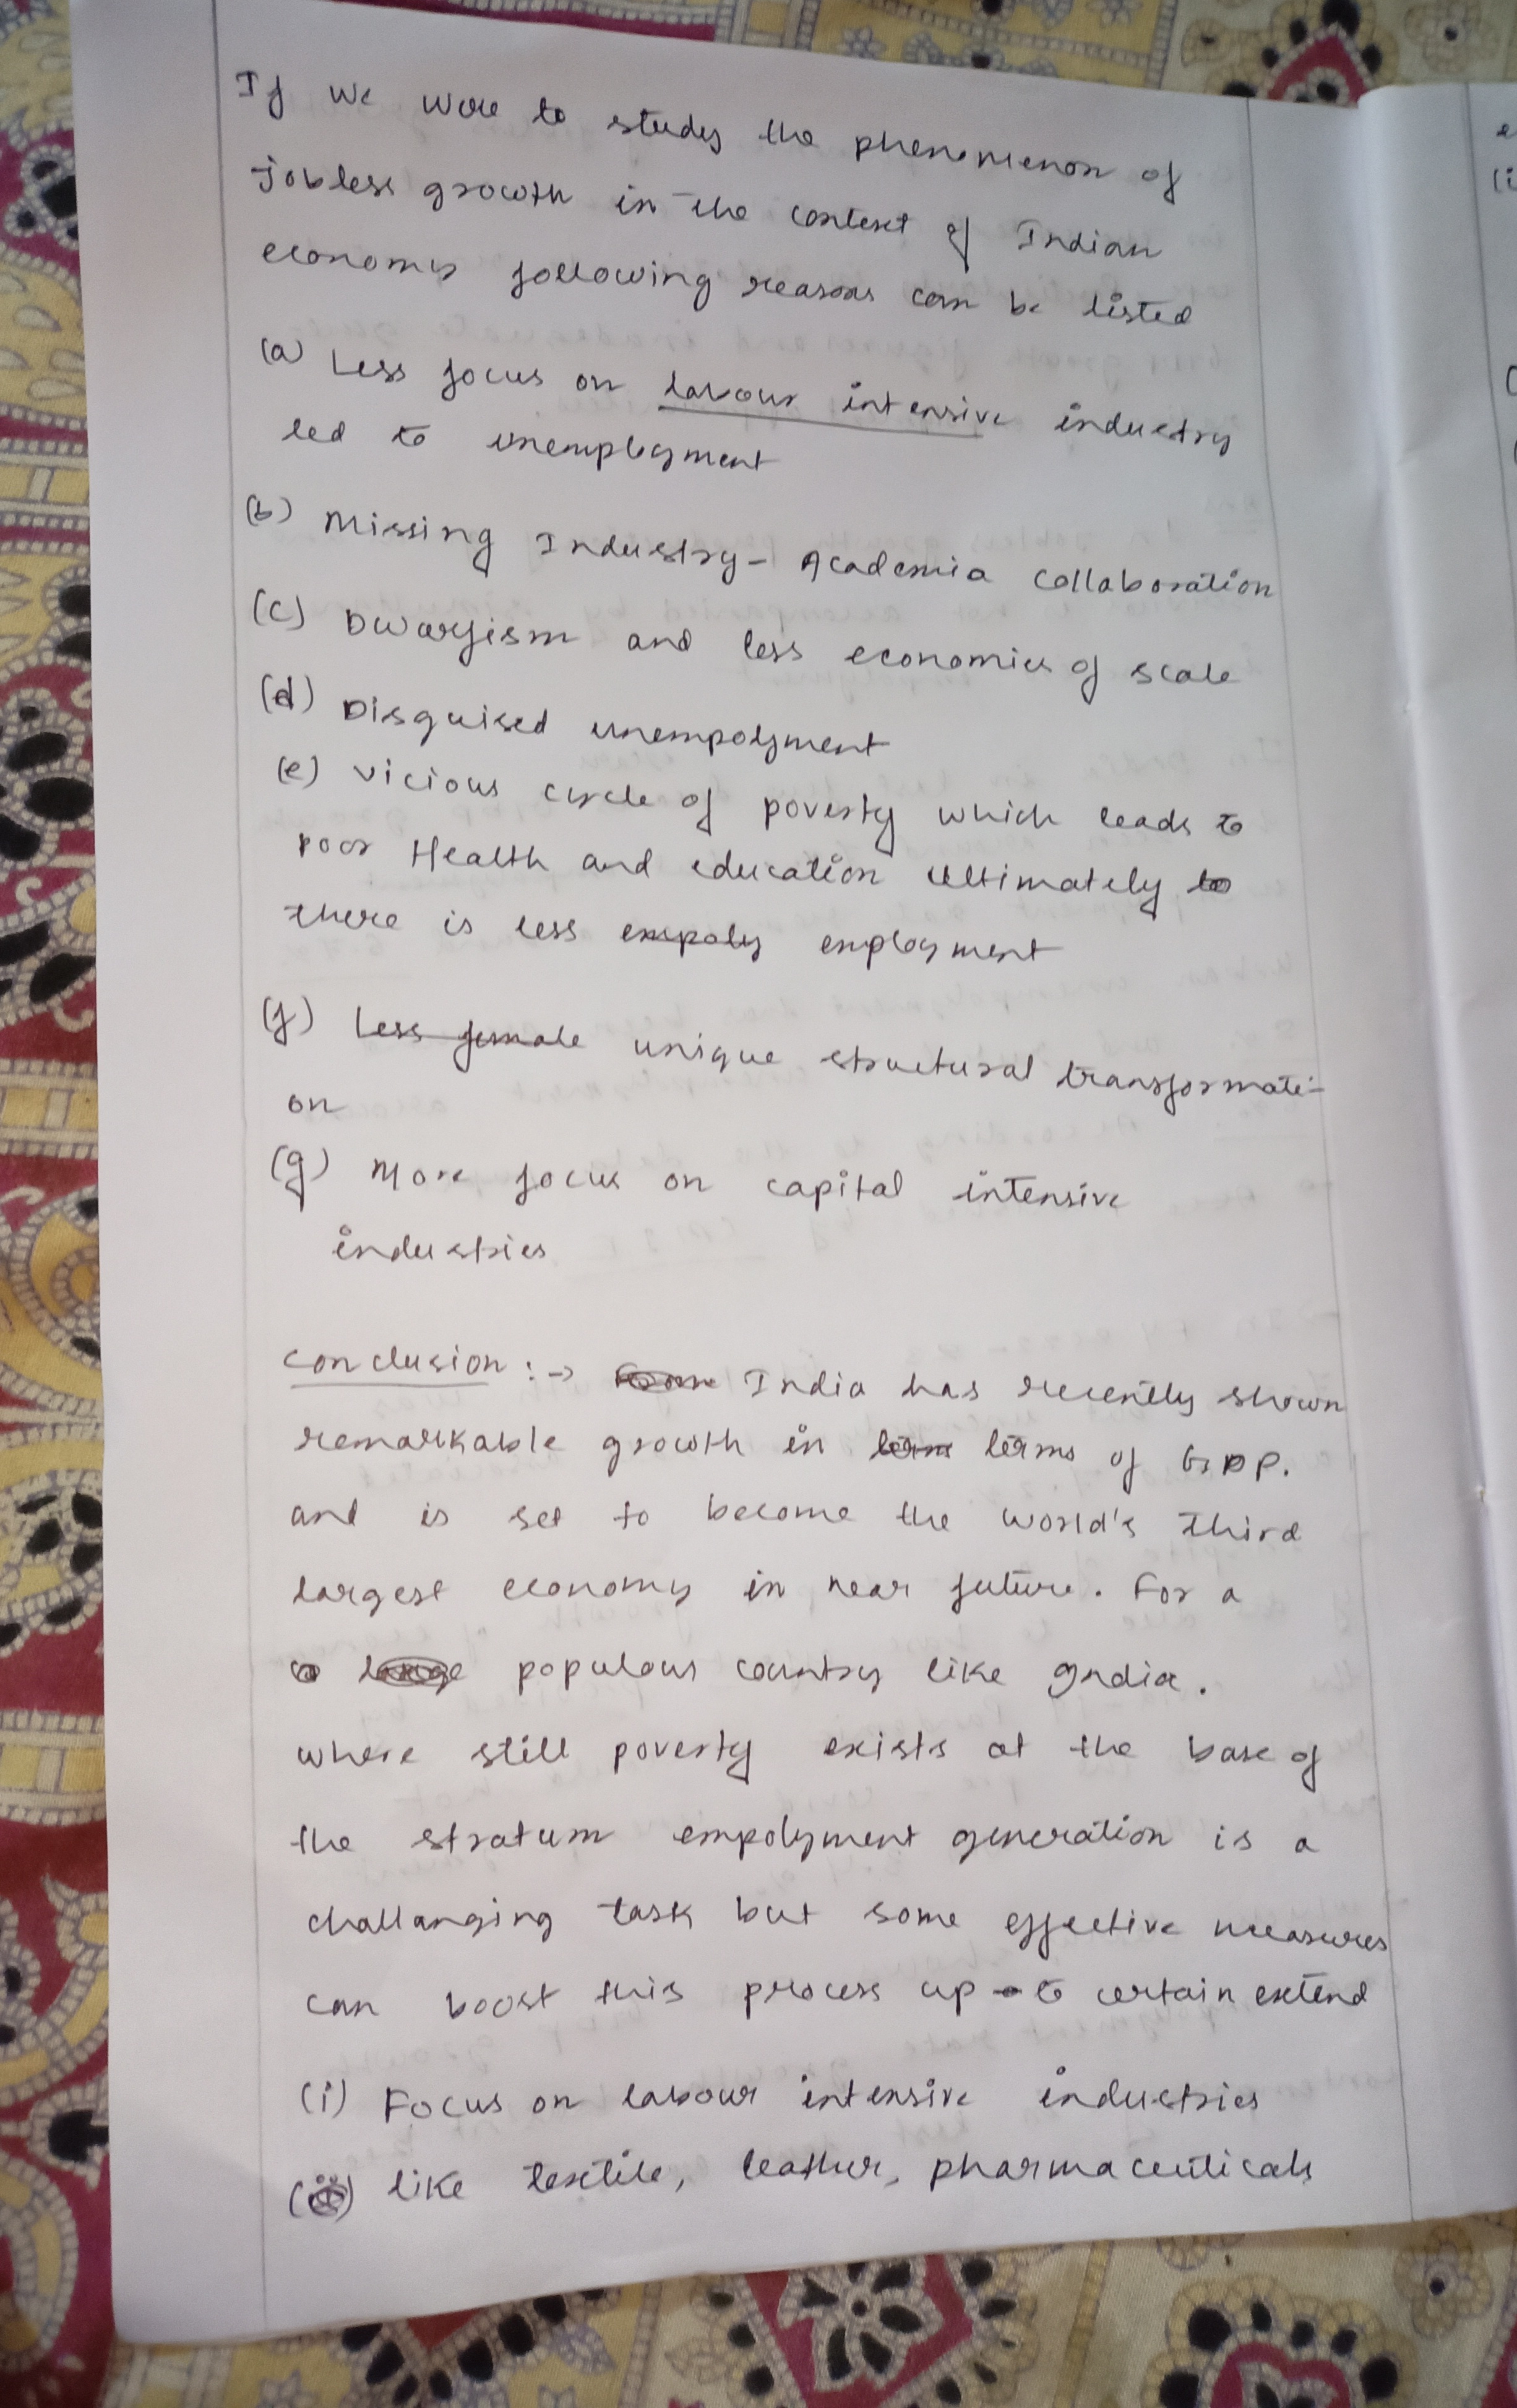 If we were to study the phenomenon of
Jobless growth in the context of Indian
economy following reasons can be listed
(a) Less focus on labour intensive industry
led to unemployment
(b) Missing Industry - Academia collaboration
(c) Dwarfism and less economies of scale
(d) Disguised unempolyment
(e) vicious circle of poverty which leads to
poor Health and education ultimately to
there is less empoly employment
(f) Less female unique structural transformati-
on
(g) More focus on capital intensive
industries
conclusion :-> India has recently shown
remarkable growth in term terms of GDP.
and is set to become the world's third
largest economy in near future. For a
a large populous country like India.
where still poverty exists at the base of
the stratum empolyment generation is a
challanging task but some effective measures
can boost this process up-to certain extend
(i) Focus on labour intensive industries
(ii) like textile, leather, pharmaceuticals